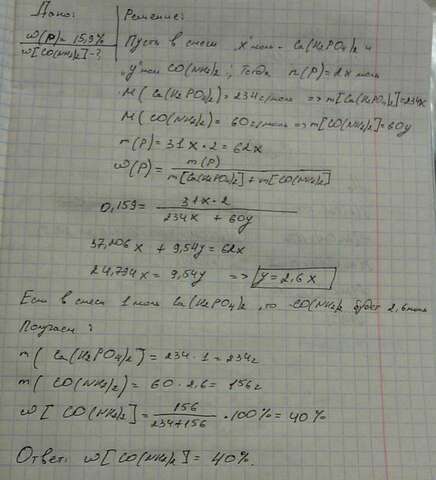 Дано:
Решение:
ω(P) = 15,9%
ω[CO(NH₂)₂] - ?
Пусть в смеси x моль - Ca(H₂PO₄)₂ и
"y" моль CO(NH₂)₂; тогда n(P) = 2x моль
M(Ca(H₂PO₄)₂) = 234 г/моль => m[Ca(H₂PO₄)₂] = 234x
M(CO(NH₂)₂) = 60 г/моль => m[CO(NH₂)₂] = 60y
m(P) = 31x · 2 = 62x
ω(P) = m(P) / m[Ca(H₂PO₄)₂] + m[CO(NH₂)₂]
0,159 = 31x · 2 / 234x + 60y
37,206x + 9,54y = 62x
24,794x = 9,54y => y = 2,6x
Если в смеси 1 моль Ca(H₂PO₄)₂, то CO(NH₂)₂ будет 2,6 моль
Получаем:
m(Ca(H₂PO₄)₂) = 234 · 1 = 234 г
m(CO(NH₂)₂) = 60 · 2,6 = 156 г
ω[CO(NH₂)₂] = 156 / 234+156 · 100% = 40%
Ответ: ω[CO(NH₂)₂] = 40%.